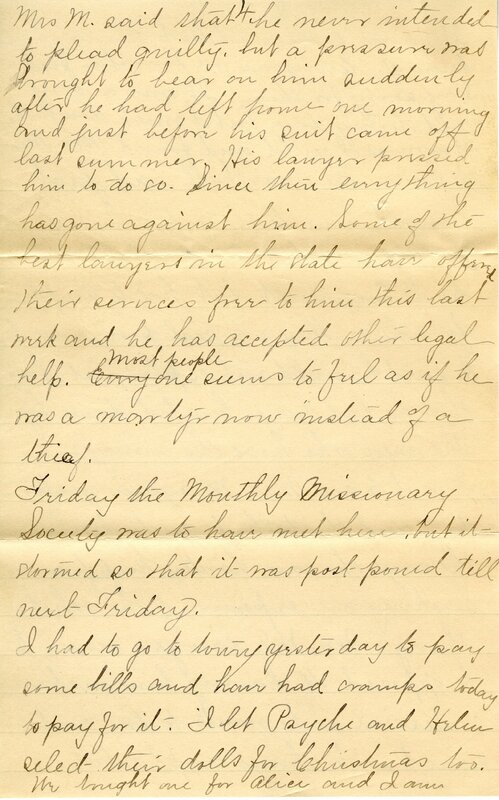 Mrs M. said that he never intended
to plead guilty, but a pressure was
brought to bear on him suddenly
after he had left home one morning
and just before his suit came off
last summer. His lawyer pressed
him to do so. Since then everything
has gone against him. Some of the
best lawyers in the state have offered
their services free to him this last
week and he has accepted other legal
most people
help. Everyone seems to feel as if he
was a martyr now instead of a
thief.
Friday the Monthly Missionary
Society was to have met here, but it
stormed so that it was post poned till
next Friday.
I had to go to town yesterday to pay
some bills and have had cramps today
to pay for it. I let Psyche and Helen
select their dolls for Christmas too.
We bought one for Alice and I am